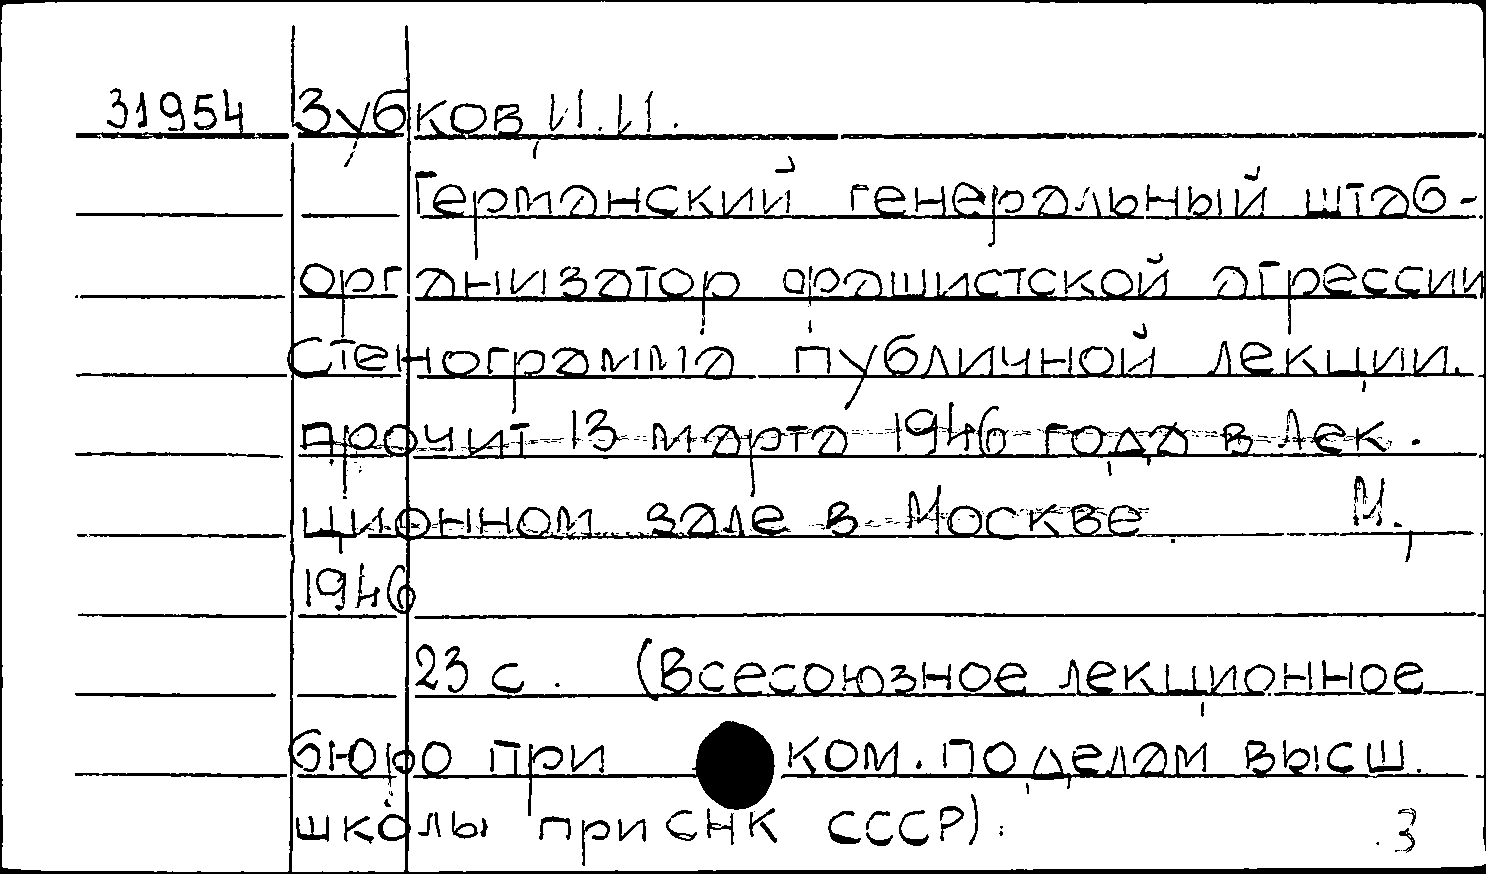 31954 Зубков, И.И.
Германский генеральный штаб-
организатор фашистской агрессии
Стенограмма публичной лекции.
прочит 13 марта 1946 года в лек.
ционном зале в Москве. М.,
1946
23 с. (Всесоюзное лекционное
бюро при ком. по делам высш.
школы при СНК СССР).
3